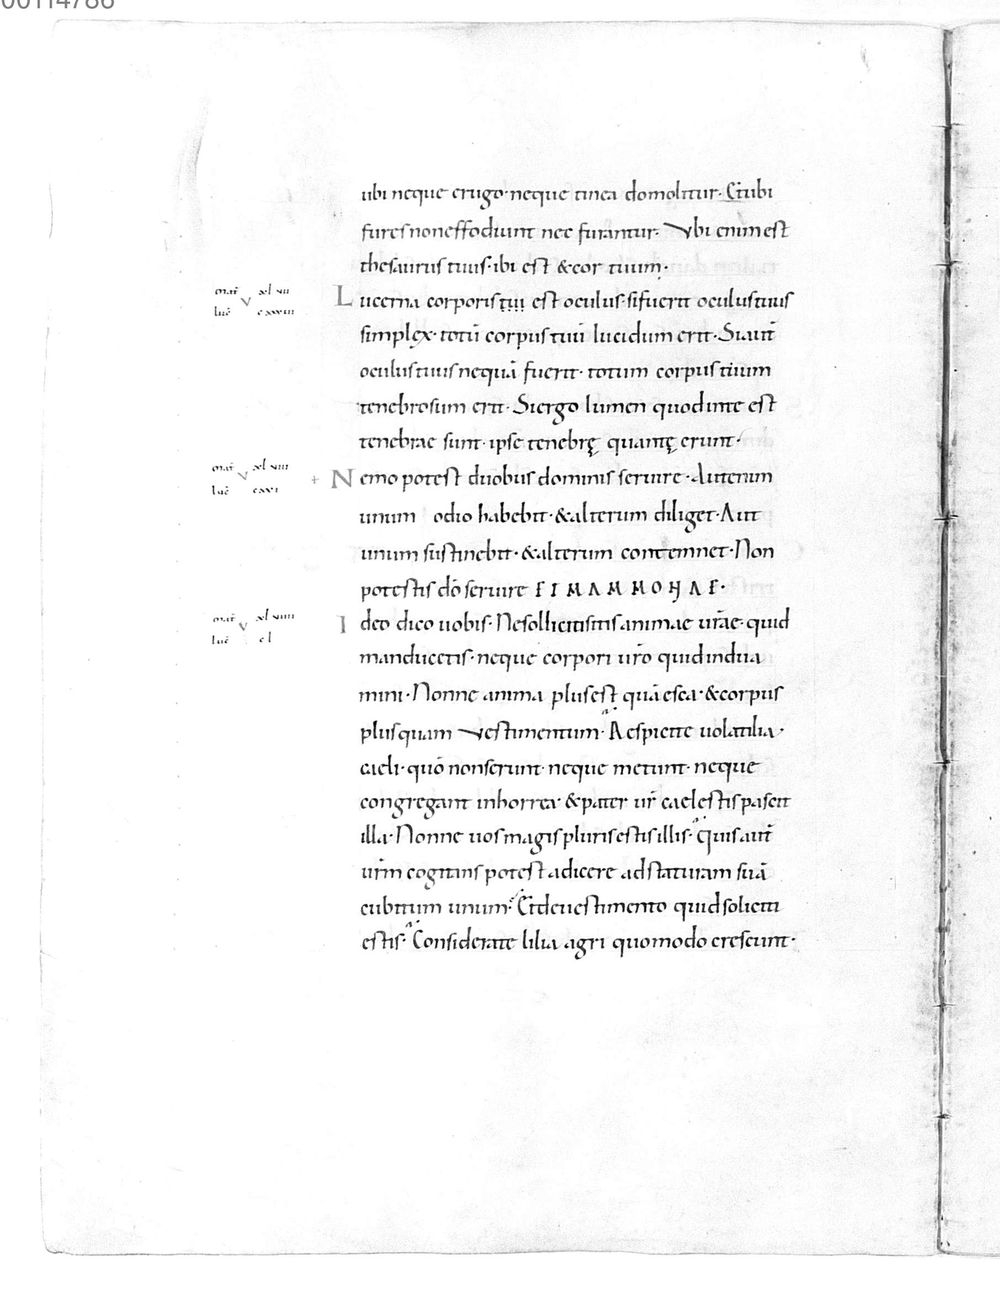 00114786
ubi neque erugo· neque tinea demolitur· Et ubi
fures non effodiunt nec furantur· Vbi enim est
thesaurus tuus· ibi est & cor tuum·
mat̄ v xl vii
luc̄ cxxxiii
Lucerna corporis tui est oculus· si fuerit oculus tuus
simplex· totū corpus tuū lucidum erit· Si aut̄
oculus tuus nequā fuerit· totum corpus tuum
tenebrosum erit· Si ergo lumen quod in te est
tenebrae sunt· ipse tenebrę quantę erunt·
mat̄ v xl viii
luc̄ cxvi
+ Nemo potest duobus dominis seruire· Aut enim
unum odio habebit· & alterum diliget· Aut
unum sustinebit· & alterum contemnet· Non
potestis dō seruire
mat̄ v xl viiii
luc̄ cl
Ideo dico uobis· Ne solliciti sitis animae ur̄ae· quid
manducetis· neque corpori ur̄o quid indua
mini· Nonne anima plus est quā esca· & corpus
plus quam Vestimentum· Aespicite uolatilia·
caeli· quō non serunt· neque metunt· neque
congregant in horrea· & pater ur̄ caelestis pascit
illa· Nonne uos magis pluris estis illis· Quis aut̄
ur̄m cogitans potest adicere ad staturam suā
cubitum unum· Et de uestimento quid soliciti
estis· Considerate lilia agri quomodo crescunt·